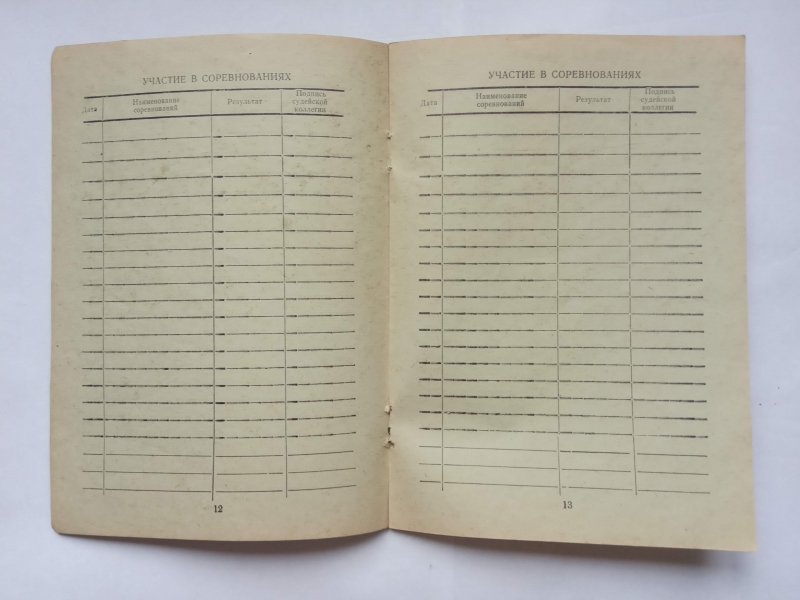 УЧАСТИЕ В СОРЕВНОВАНИЯХ
Дата
Наименование
соревнований
Результат
Подпись
судейской
коллегии
12
УЧАСТИЕ В СОРЕВНОВАНИЯХ
Дата
Наименование
соревнований
Результат
Подпись
судейской
коллегии
13